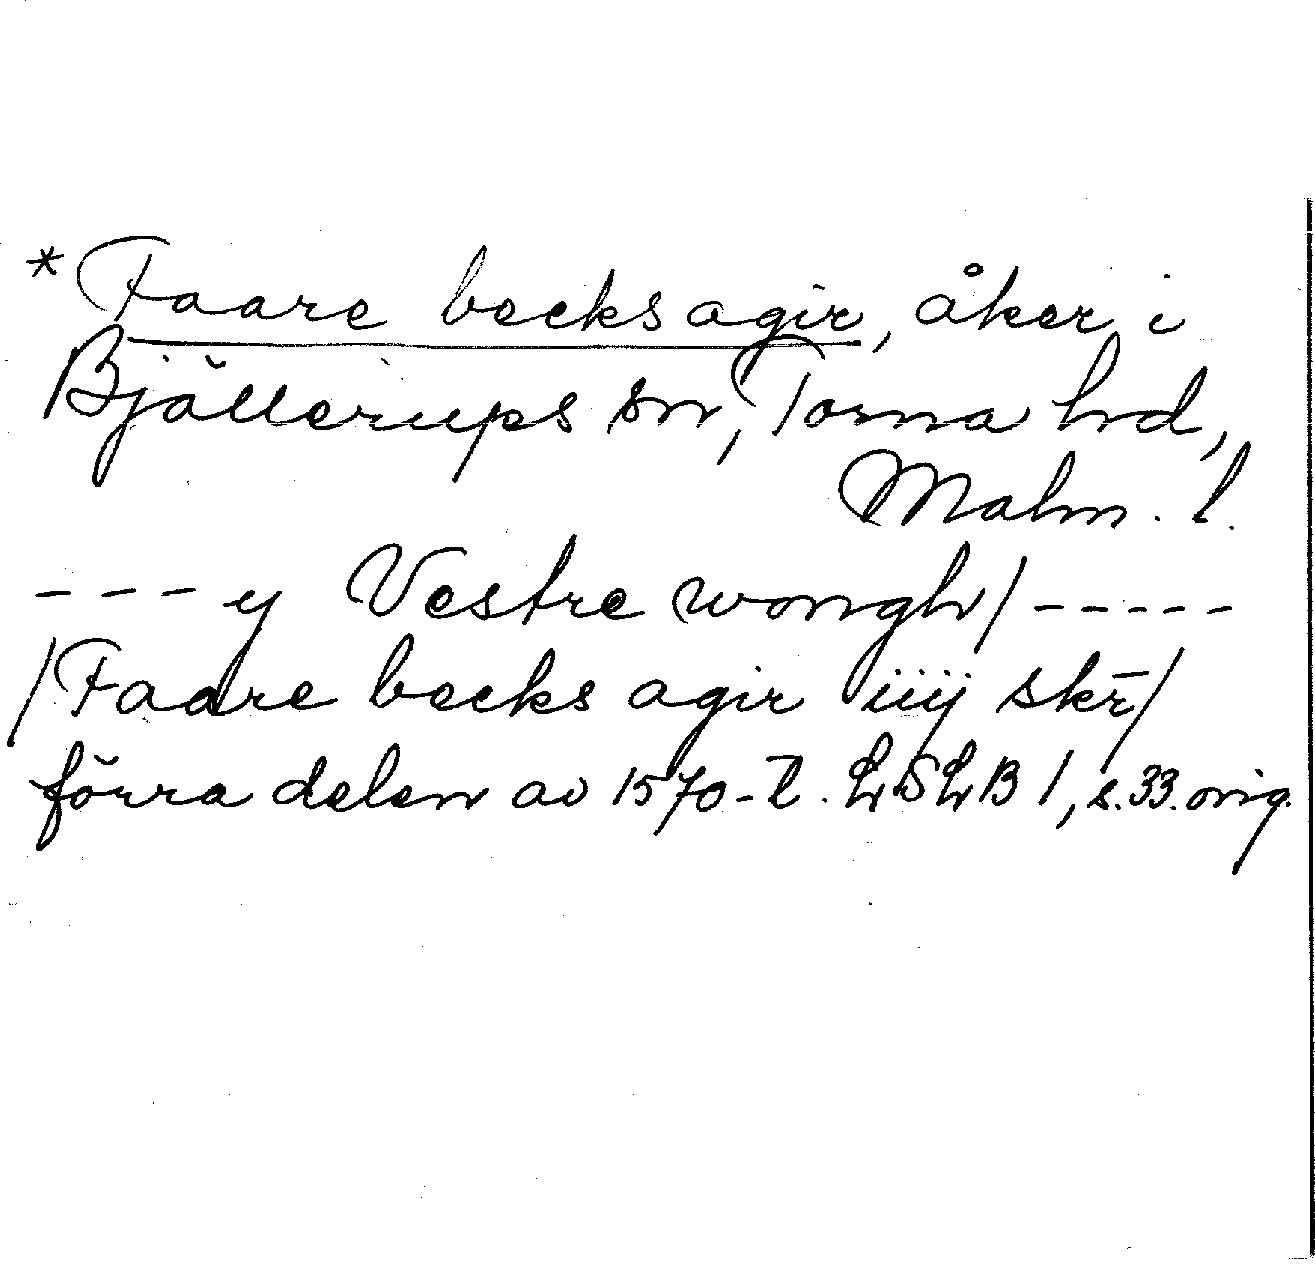 * Faare becks agir, åker i
Bjällerups sn, Torna hd,
Malm. l.
---y Vestre wongh/-----
/Faare becks agir iiij skr̄/
förra delen av 1570-t. LSLB 1, s. 33. orig.